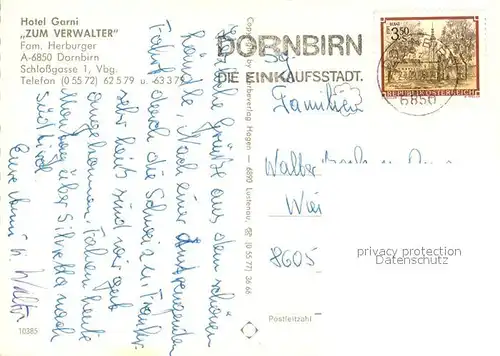 Hotel Garni
„ZUM VERWALTER"
Fam. Herburger
A-6850 Dornbirn
Schloßgasse 1, Vbg.
Telefon (0 55 72) 62 5 79 u. 63 3 79
Grüße aus dem schönen
Ländle. Nach einer anstrengenden
Fahrt durch die Schweiz u. Frankr.
sehr heiß sind wir gut
angekommen. Fahren heute
Montag über Silvretta nach
Südtirol
Eure u. Walter
10385
Copyright by Werbeverlag Hagen — 6890 Lustenau, ☎ (0 55 77) 36 66
DORNBIRN
DIE EINKAUFSSTADT.
3.50
REPUBLIK ÖSTERREICH
6850
Familien
Walter
8605
Postleitzahl
privacy protection
Datenschutz